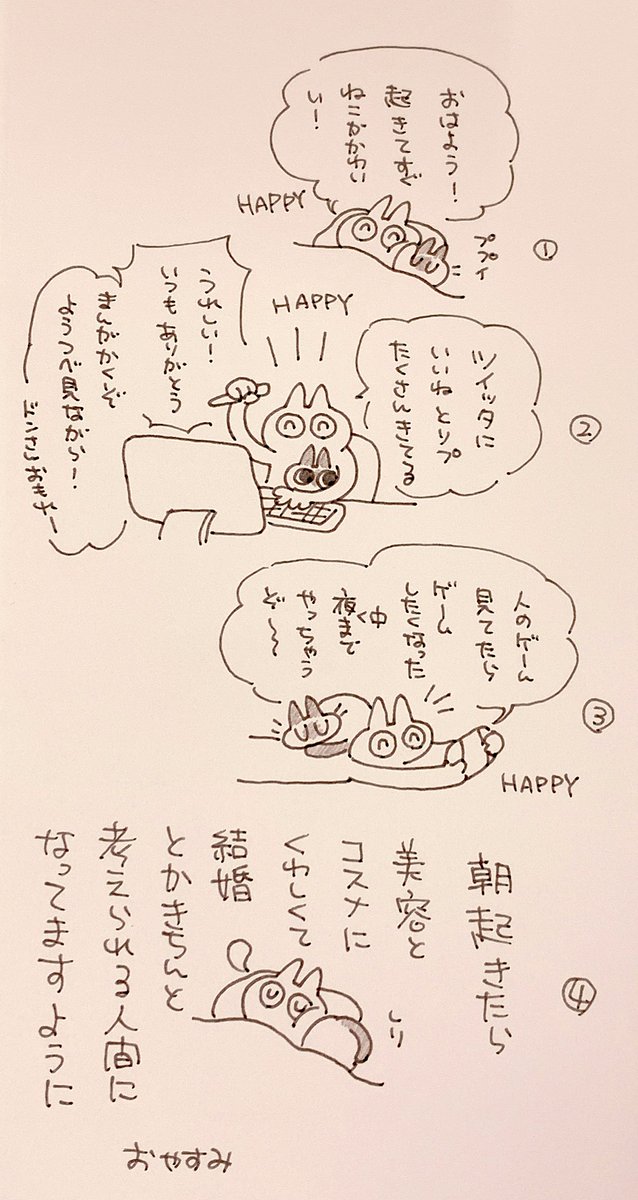 ①
おはよう!
起きてすぐ
ねこがかわい
い!
HAPPY
ププイ
②
ツイッタに
いいねとリプ
たくさんきてる
HAPPY
うれしい!
いつもありがとう
まんがかくぞ
ようつべ見ながら!
③
人のゲーム
見てたら
ゲーム
したくなった
夜中まで
やっちゃう
ぞ〜〜
HAPPY
④
朝起きたら
美容と
コスメに
くわしくて
結婚
とかきちんと
考えられる人間に
なってますように
しり
おやすみ